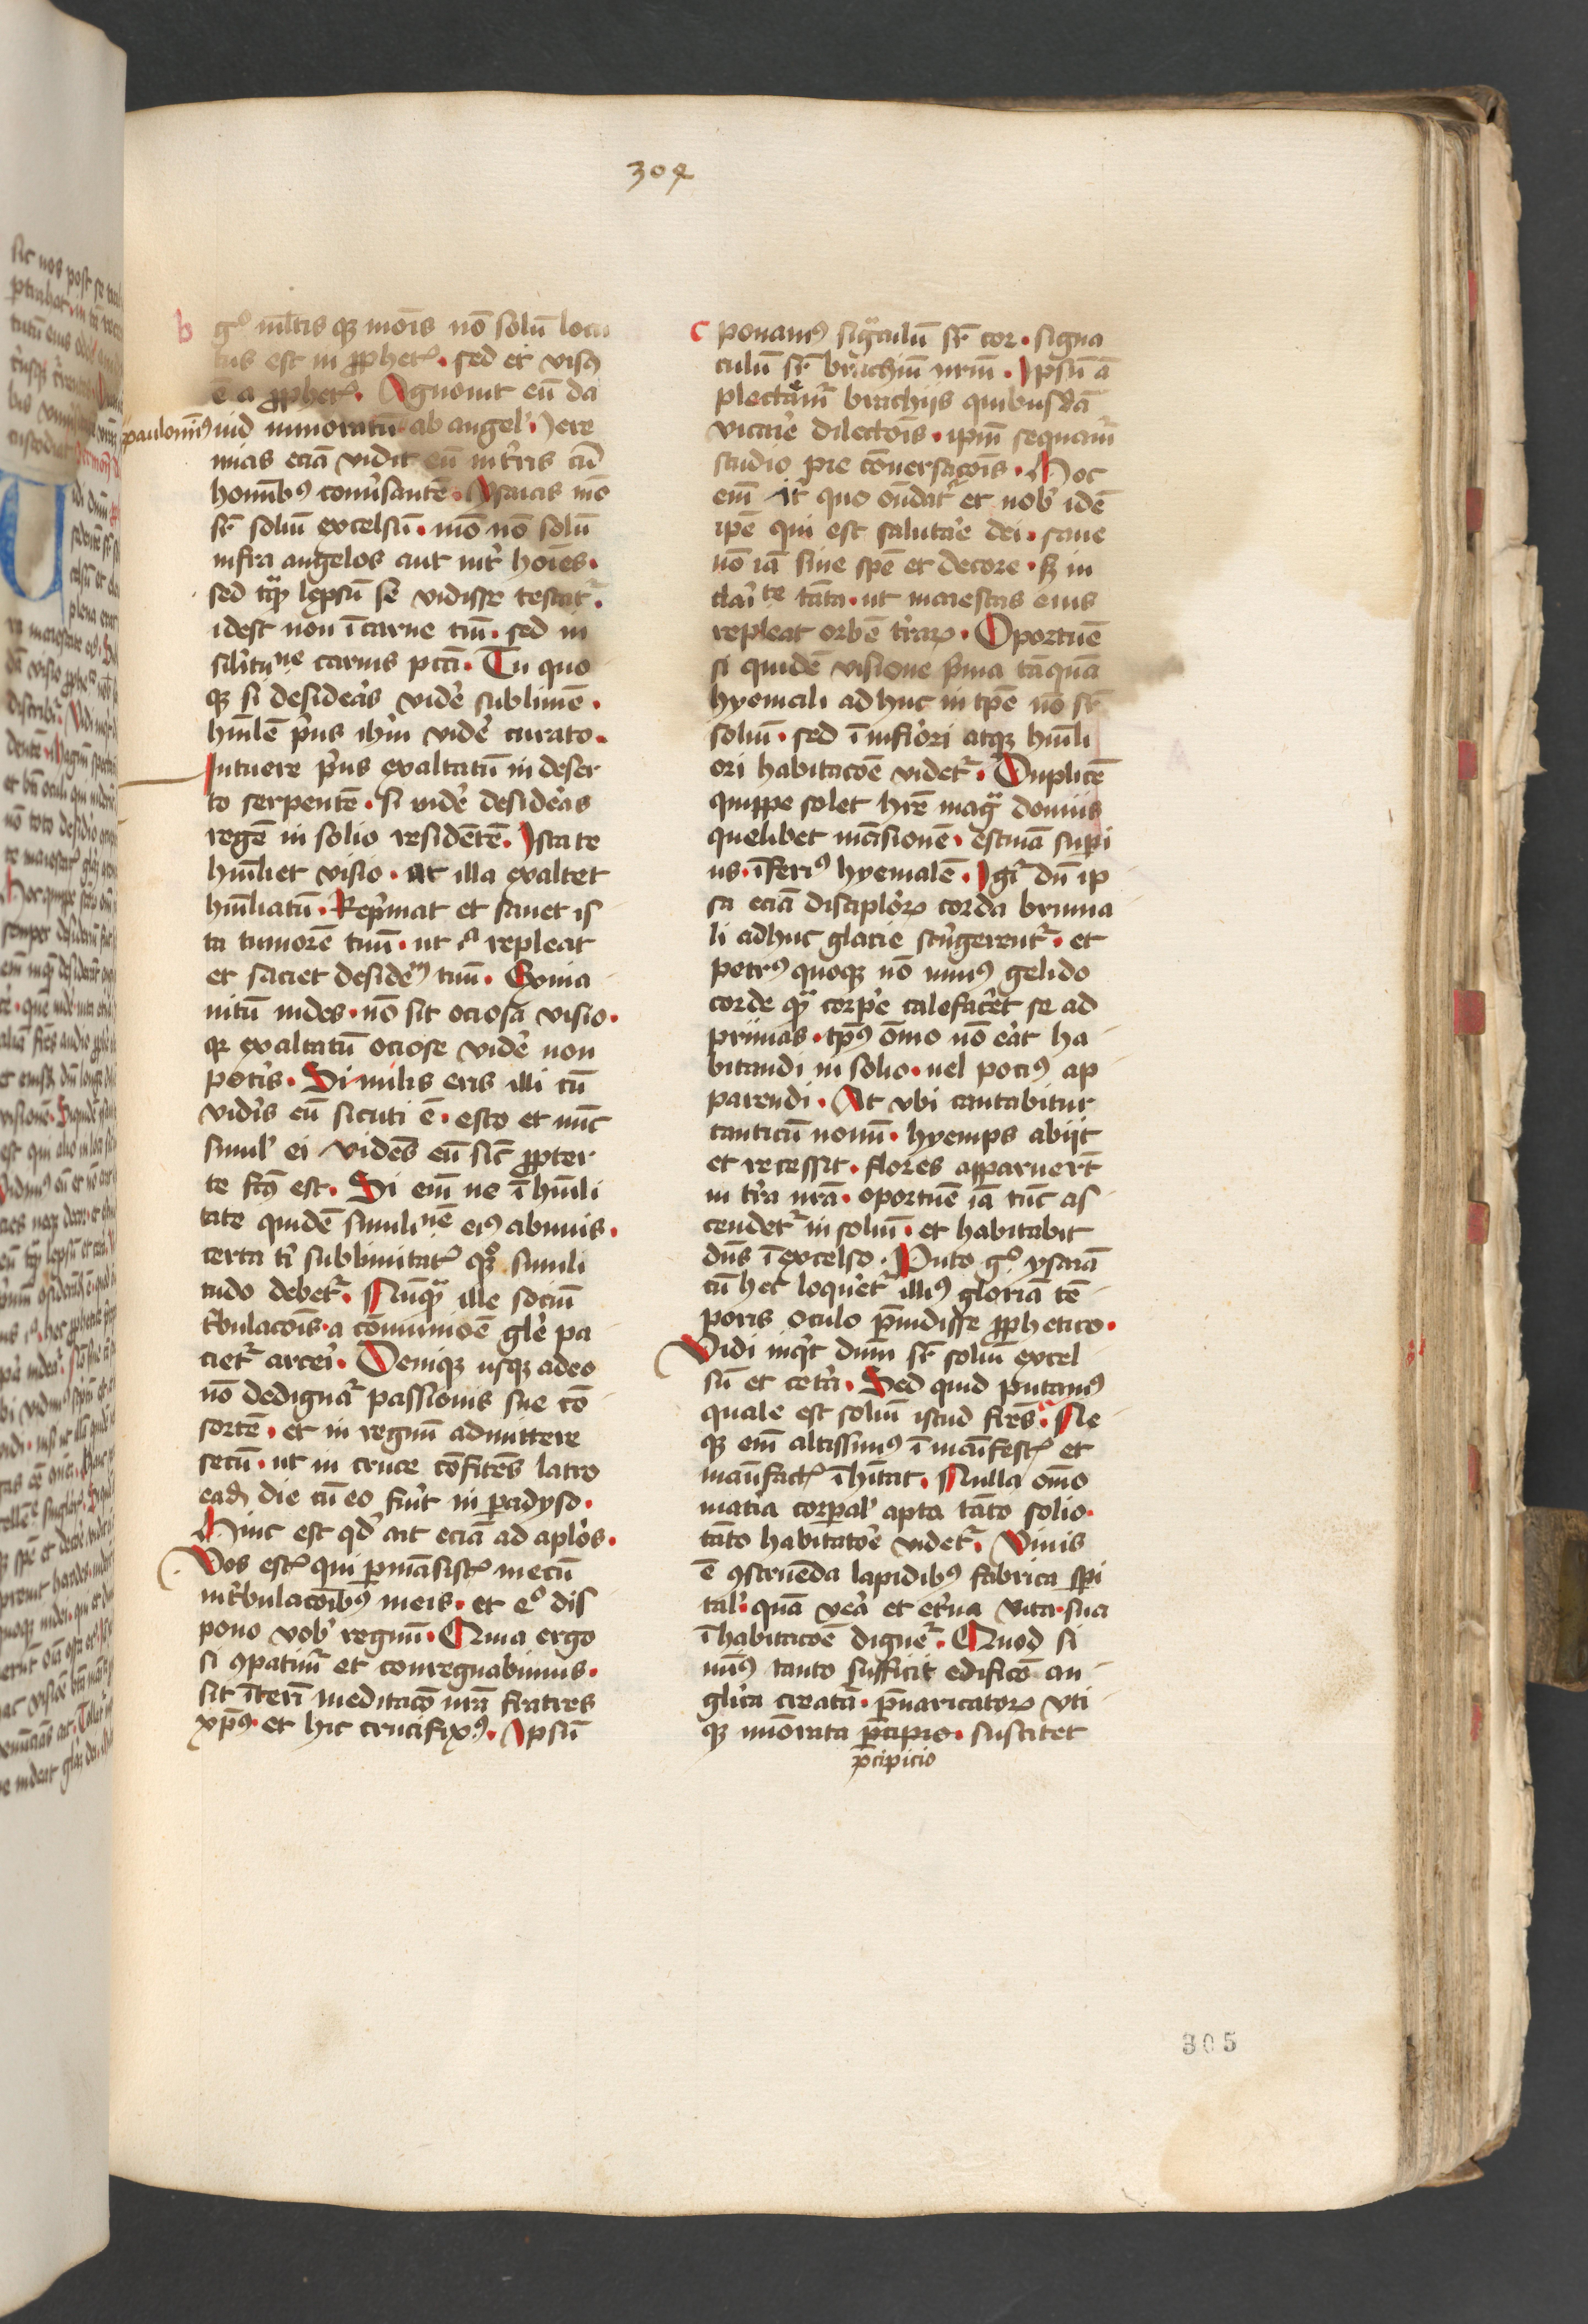 304
b gͦ ml̄tis qꝫ mois nō solū locu
tus est in ꝓphetꝭ · sed et visꝰ
ē a ꝓphetꝭ · Agnouit eū da
paulominꝰ
uid minoratū ab angel' · Jere
mias eciā vidit eū in t'ris cū
homībꝰ conu'santē · Ysaias mō
sꝛ̄ soliū excelsū · mō nō solū
infra angelos aut int' hoīes ·
sed tq̄ꝫ lepsū se vidisse testat᷑ ·
idest non ī carne tm̄ · sed in
sil'itune carnis pcc̄i · Tu quo
qꝫ si desidēas vid'e sublimē ·
hūilē p'us ihm̄ vid'e curato ·
Intuere p'us exaltatū in deser
to serpentē · si vid'e desid'eas
regē in solio residētē · Ista te
hūiliet visio · ut illa exaltet
hūiliatū · Rep'mat et sanet is
ta tumorē tuū · ut ꝭ repleat
et saciet desid'eiū tuū · Exina
nitū uides · nō sit ociosa visio ·
qꝛ exaltatū ociose vid'e non
pot'is · Similis eris illi cū
vid'is eū sicuti ē · esto et nūc
simil' ei videns eū sic̄ ꝓpter
te fc̄us est · Si em̄ ne ī hūili
tate quidē simil'inē eiꝰ abnuis ·
certa t' sublimitatꝭ qꝫ simili
tudo debet᷑ · Nūq̄ꝫ ille sociū
t'bulacōis · a cōmunioē gl'e pa
ciet᷑ arcei · Deniqꝫ usqꝫ adeo
nō dedignat᷑ passionis sue cō
sortē · et in regnū admittere
secū · ut in cruce cōfitēs latro
eadē die cū eo fu'it in ꝑadyso ·
Hinc est qd' ait eciā ad apl'os ·
Vos estꝭ qui ꝑmāsistꝭ mecū
in t'bulacōibꝰ meis · et eͦ dis
pono vob' regnū · Quia ergo
si ꝯpatimᷣ et conregnabimus ·
sit īterī meditacō nr̄a fratres
xp̄us · et hic crucifixꝰ · Ipsū
c ponamꝰ sig̈culū sꝛ̄ cor · signa
culū sꝛ̄ brachiū nr̄m · Ipsū ā
plectam᷑ brachijs quibusdā
vicarie dilectōis · ipm̄ sequam᷑
studio pie cōuersacōis · Hoc
em̄ it' quo on̄dat᷑ et nob' idē
ipē qui est salutar'e dei · sane
nō iā sine spē et decore · sꝫ in
clai'te tāta · ut maiestas eius
repleat orbē t'raꝝ · Oportuē
si quidē visione p'ma tāquā
hyemali adhuc in tp̄e nō sꝛ̄
soliū · sed ī infiori atqꝫ hūili
ori habitacōe videt᷑ · Duplicē
quippe solet hr̄e mag̈ domus
quelibet māsionē · estiuā supi
us · īferiꝰ hyemalē · Igr̄ dū ip
sa eciā discipl'oꝝ corda bruma
li adhuc glacie st'ngerent᷑ · et
petrꝰ quoqꝫ nō minꝰ gelido
corde qꝫ corp'e calefac'et se ad
prunas · tp̄us om̄o nō e'at ha
bitandi in solio · uel pociꝰ ap
parendi · At vbi cantabitur
canticū nouū · hyemps abijt
et recessit · flores apparuer̄t
in t'ra nr̄a · oportuē iā tūc as
cendet᷑ in soliū · et habitabit
dn̄s ī excelso · Puto gͦ ysaiā
cū hec loqu'et᷑ illiꝰ gloriā tē
poris oculo p̄uidisse ꝓphetico ·
Vidi inq't dnm̄ sꝛ̄ soliū excel
sū et cet'a · Sed quid putamꝰ
quale est soliū istud frēs · Ne
qꝫ em̄ altissimꝰ ī manifestꝭ et
manufactꝭ īhītat · Nulla om̄o
mat'ia corꝑal' apta tāto solio ·
tāto habitatōe videt᷑ · Viuis
ē ꝯstruēda lapidibꝰ fabrica spi
tal' · quā ve'a et et'na vita · sua
īhabitacōe dignet᷑ · Quod si
minꝰ tanto sufficit edificō an
glica creat'a · p̄uaricatoꝝ vti
qꝫ minorata p̄cipio · suscitet
p̄cipicio
305